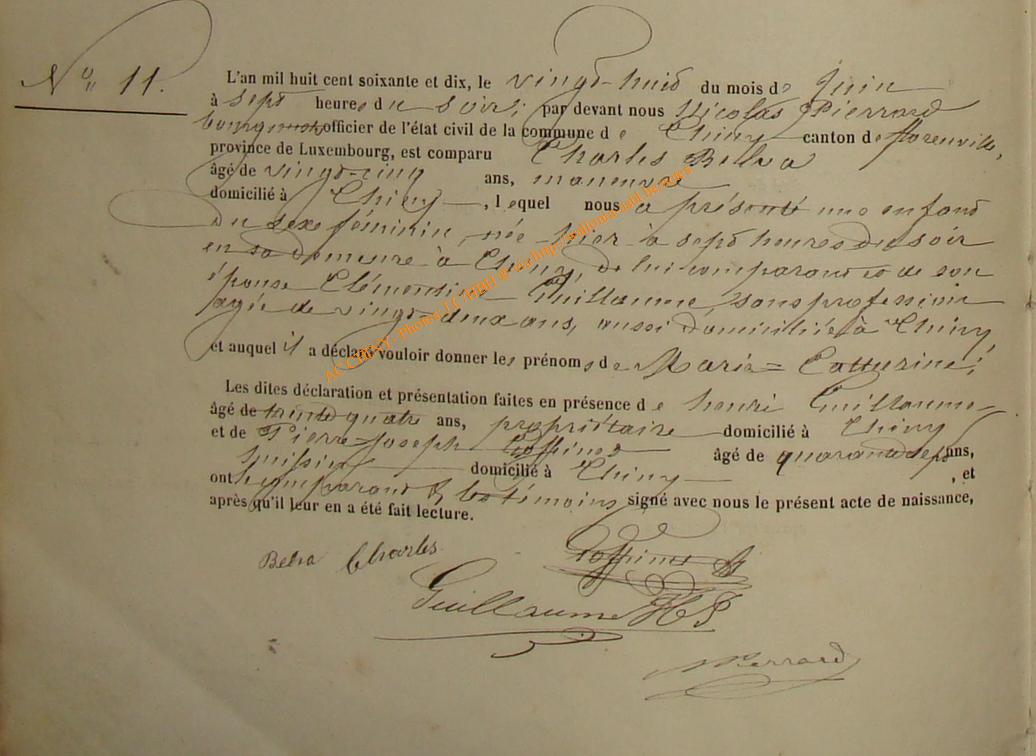 N° 11.
L'an mil huit cent soixante et dix, le vingt-huit du mois de Juin
à sept heures du soir, par devant nous Nicolas Pierrard
bourgmestre officier de l'état civil de la commune de Chiny canton de florenville,
province de Luxembourg, est comparu Charles Belva
âgé de vingt-cinq ans, manoeuvre
domicilié à Chiny, lequel nous a présenté une enfant
du sexe féminin, née hier à sept heures du soir
en sa demeure à Chiny, de lui comparant et de son
épouse Clémentine Guillaume, sans profession
agée de vingt-deux ans, aussi domiciliée à Chiny,
et auquel il a déclaré vouloir donner les prénoms de Marie = Catherine;
Les dites déclaration et présentation faites en présence de henri Guillaume
âgé de trente quatre ans, propriétaire domicilié à Chiny
et de Pierre-Joseph Goffinet âgé de quarante sept ans,
domicilié à Chiny, et
ont le comparant & les témoins signé avec nous le présent acte de naissance,
après qu'il leur en a été fait lecture.
Belva Charles
Goffinet
Guillaume H J
Pierrard